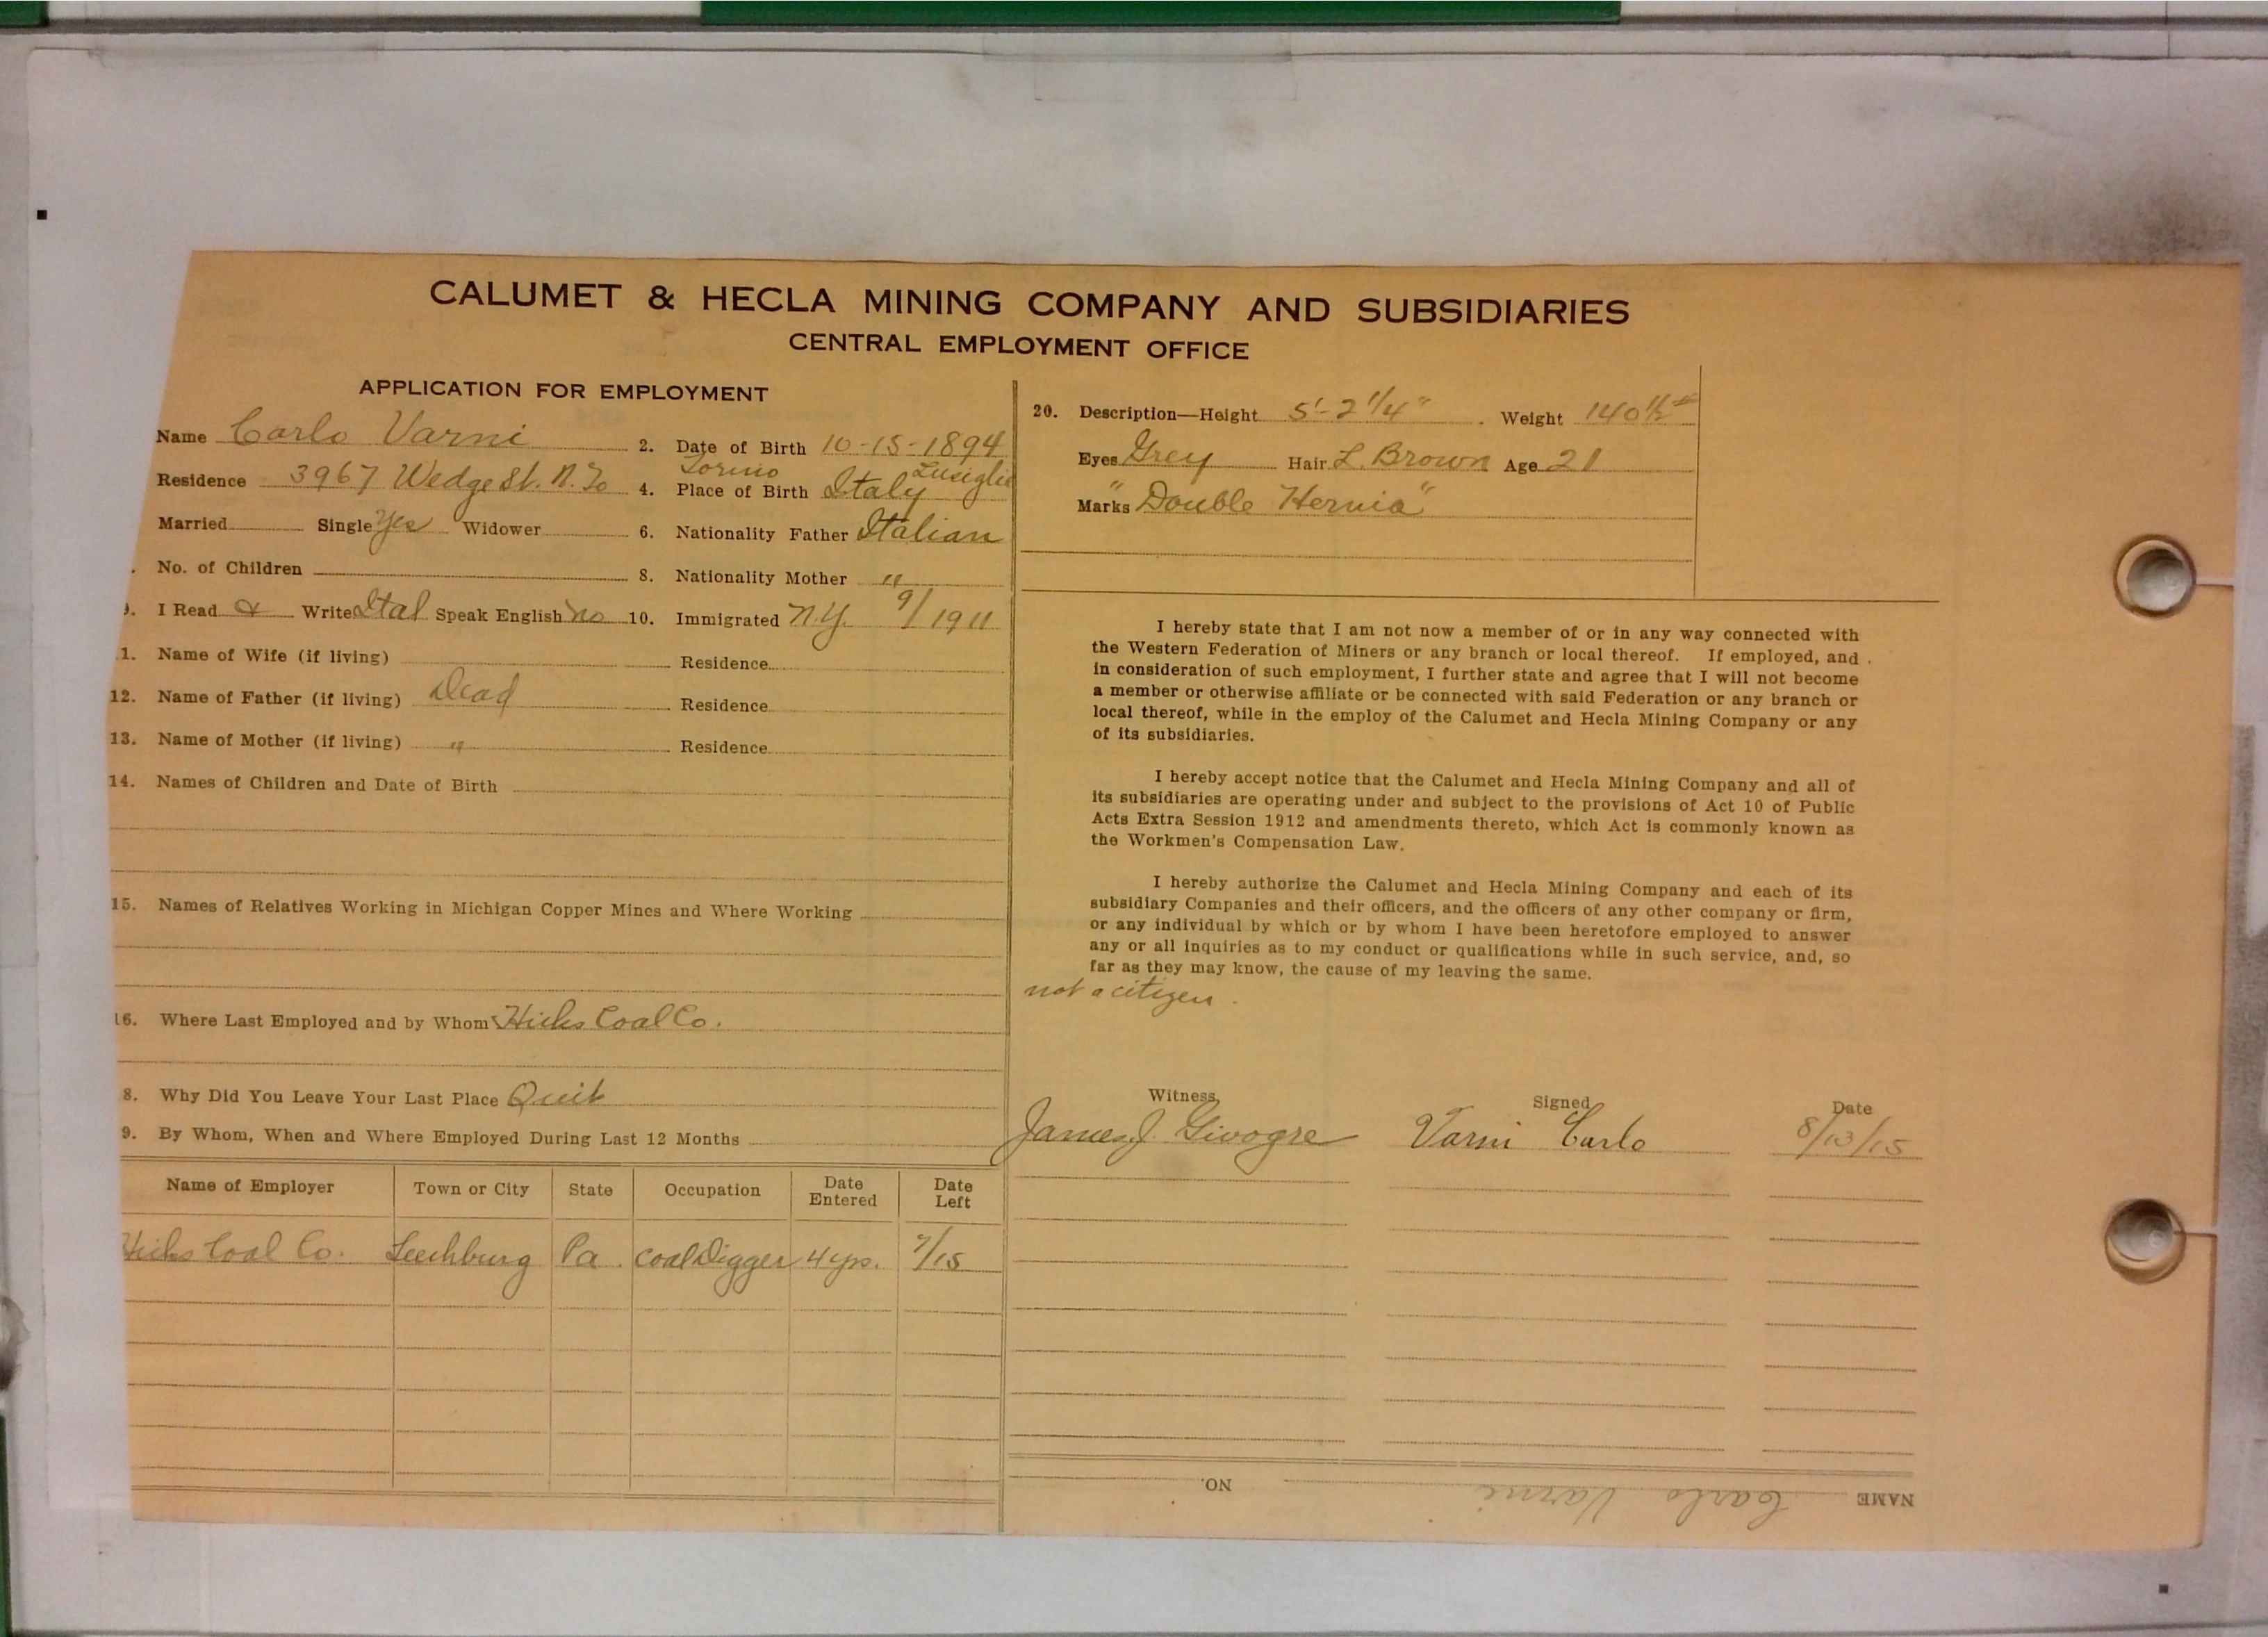 CALUMET & HECLA MINING COMPANY AND SUBSIDIARIES
CENTRAL EMPLOYMENT OFFICE
APPLICATION FOR EMPLOYMENT
Name Carlo Varni 2. Date of Birth 10-15-1894
Residence 3967 Wedge St. N. To 4. Place of Birth Torino Italy Lusiglie
Married Single Yes Widower 6. Nationality Father Italian
No. of Children 8. Nationality Mother "
9. I Read & Write Ital Speak English no 10. Immigrated N.Y. 9/1911
1. Name of Wife (if living) Residence
12. Name of Father (if living) Dead Residence
13. Name of Mother (if living) " Residence
14. Names of Children and Date of Birth
15. Names of Relatives Working in Michigan Copper Mines and Where Working
16. Where Last Employed and by Whom Hicks Coal Co.
8. Why Did You Leave Your Last Place Quit
9. By Whom, When and Where Employed During Last 12 Months
Name of Employer Town or City State Occupation Date Entered Date Left
Hicks Coal Co. Leechburg Pa. Coal Digger 4 yrs. 7/15
20. Description—Height 5'-2 1/4" Weight 140 1/2 #
Eyes Grey Hair L. Brown Age 21
Marks "Double Hernia"
I hereby state that I am not now a member of or in any way connected with
the Western Federation of Miners or any branch or local thereof. If employed, and
in consideration of such employment, I further state and agree that I will not become
a member or otherwise affiliate or be connected with said Federation or any branch or
local thereof, while in the employ of the Calumet and Hecla Mining Company or any
of its subsidiaries.
I hereby accept notice that the Calumet and Hecla Mining Company and all of
its subsidiaries are operating under and subject to the provisions of Act 10 of Public
Acts Extra Session 1912 and amendments thereto, which Act is commonly known as
the Workmen's Compensation Law.
I hereby authorize the Calumet and Hecla Mining Company and each of its
subsidiary Companies and their officers, and the officers of any other company or firm,
or any individual by which or by whom I have been heretofore employed to answer
any or all inquiries as to my conduct or qualifications while in such service, and, so
far as they may know, the cause of my leaving the same.
not a citizen.
Witness Signed Date
James J. Givogre Varni Carlo 8/13/15
NAME Carlo Varni NO.